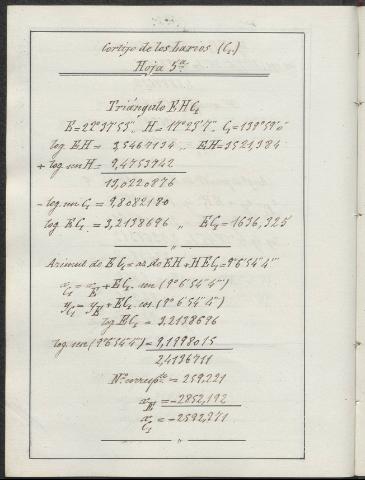 Cortijo de los Larios (C₁)
Hoja 5ª
Triángulo E H C₁
E=22°37'53",, H=17°23'7",, C₁=139°59'0"
log. EH = 3,5467134 ,, EH=3521,384
+ log. sen H = 9,4753942
13,0220876
- log. sen C₁ = 9,8082180
log. EC₁ = 3,2138696 ,, EC₁=1636,325
Azimut de EC₁ = az. de EH + HEC₁=9°6'54"4'''
x C₁ = x E + EC₁. sen (9°6'54"4''')
y C₁ = y E + EC₁. cos (9°6'54"4''')
log EC₁ = 3,2138696
log. sen (9°6'54"4''') = 9,1998015
2,4136711
Nº corresp.te = 259,221
x E = -2852,192
x C₁ = -2592,271